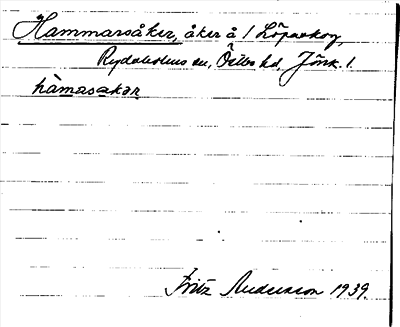 Hammarsåker, åker å 1 Löpaskog,
Rydaholms sn, Östbo hd, Jönk. l.
hàmasakər
Fritz Anderson 1939.